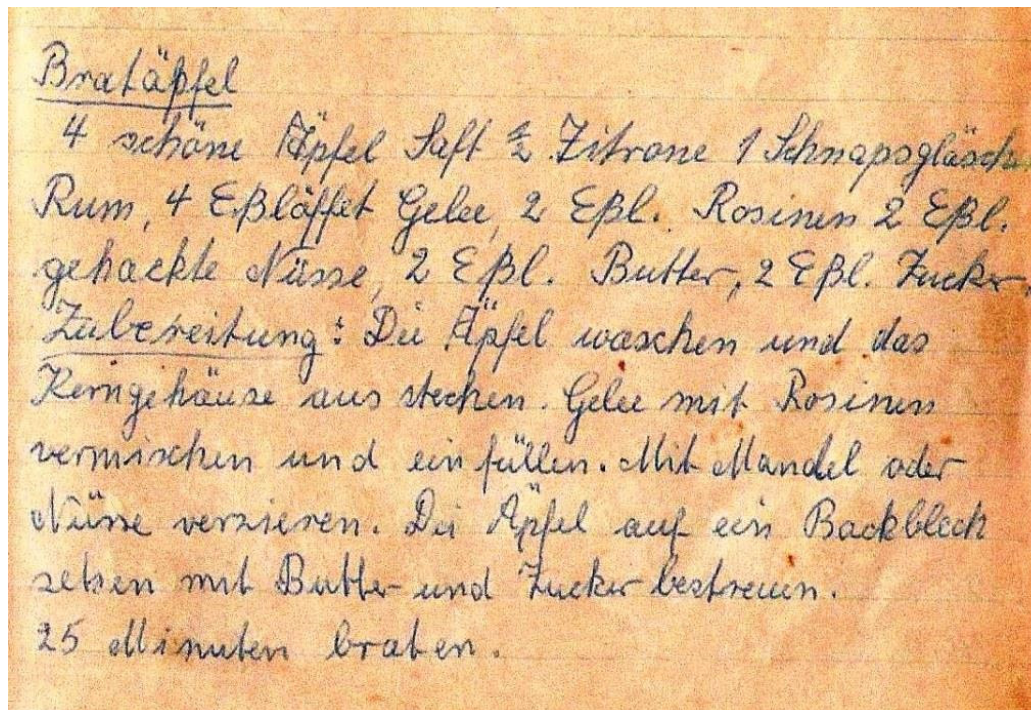 Bratäpfel
4 schöne Äpfel Saft ½ Zitrone 1 Schnapsgläsch.
Rum, 4 Eßlöffet Gelee, 2 Eßl. Rosinen 2 Eßl.
gehackte Nüsse, 2 Eßl. Butter, 2 Eßl. Zucker.
Zubereitung: Die Äpfel waschen und das
Kerngehäuse aus stechen. Gelee mit Rosinen
vermischen und ein füllen. Mit Mandel oder
Nüsse verzieren. Die Äpfel auf ein Backblech
setzen mit Butter und Zucker bestreuen.
25 Minuten braten.